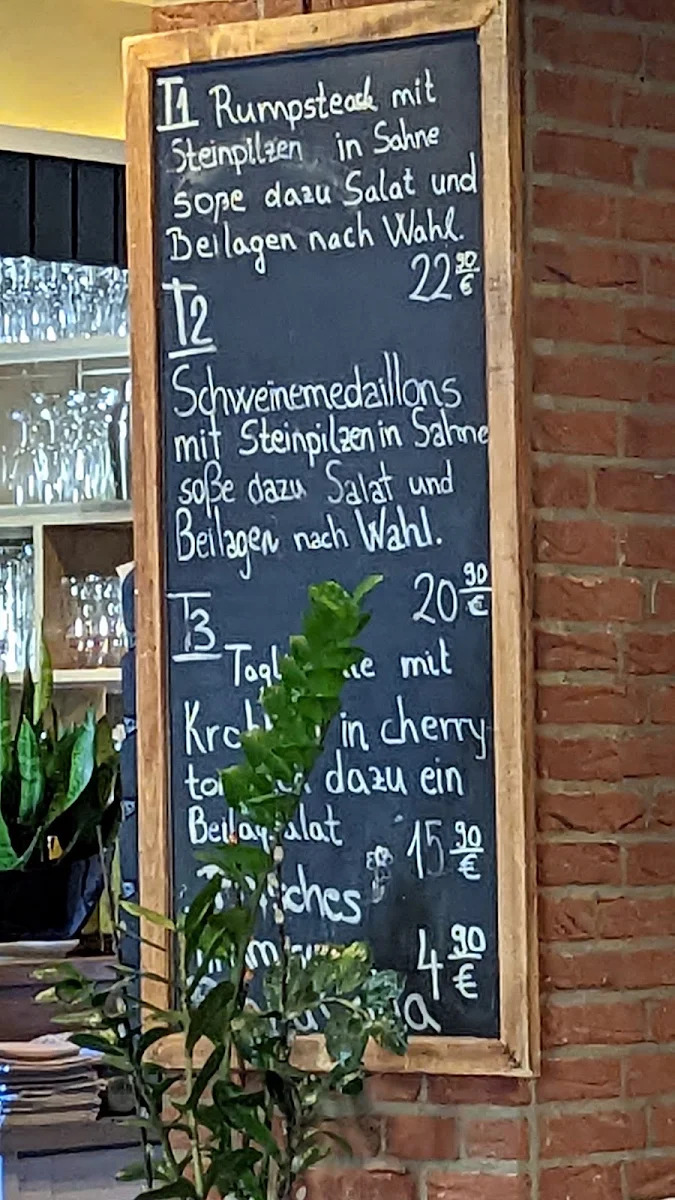 T1 Rumpsteack mit
Steinpilzen in Sahne
soße dazu Salat und
Beilagen nach Wahl.
22 90 €
T2
Schweinemedaillons
mit Steinpilzen in Sahne
soße dazu Salat und
Beilagen nach Wahl.
20 90 €
T3
mit
in cherry
dazu ein
15 90 €
4 90 €